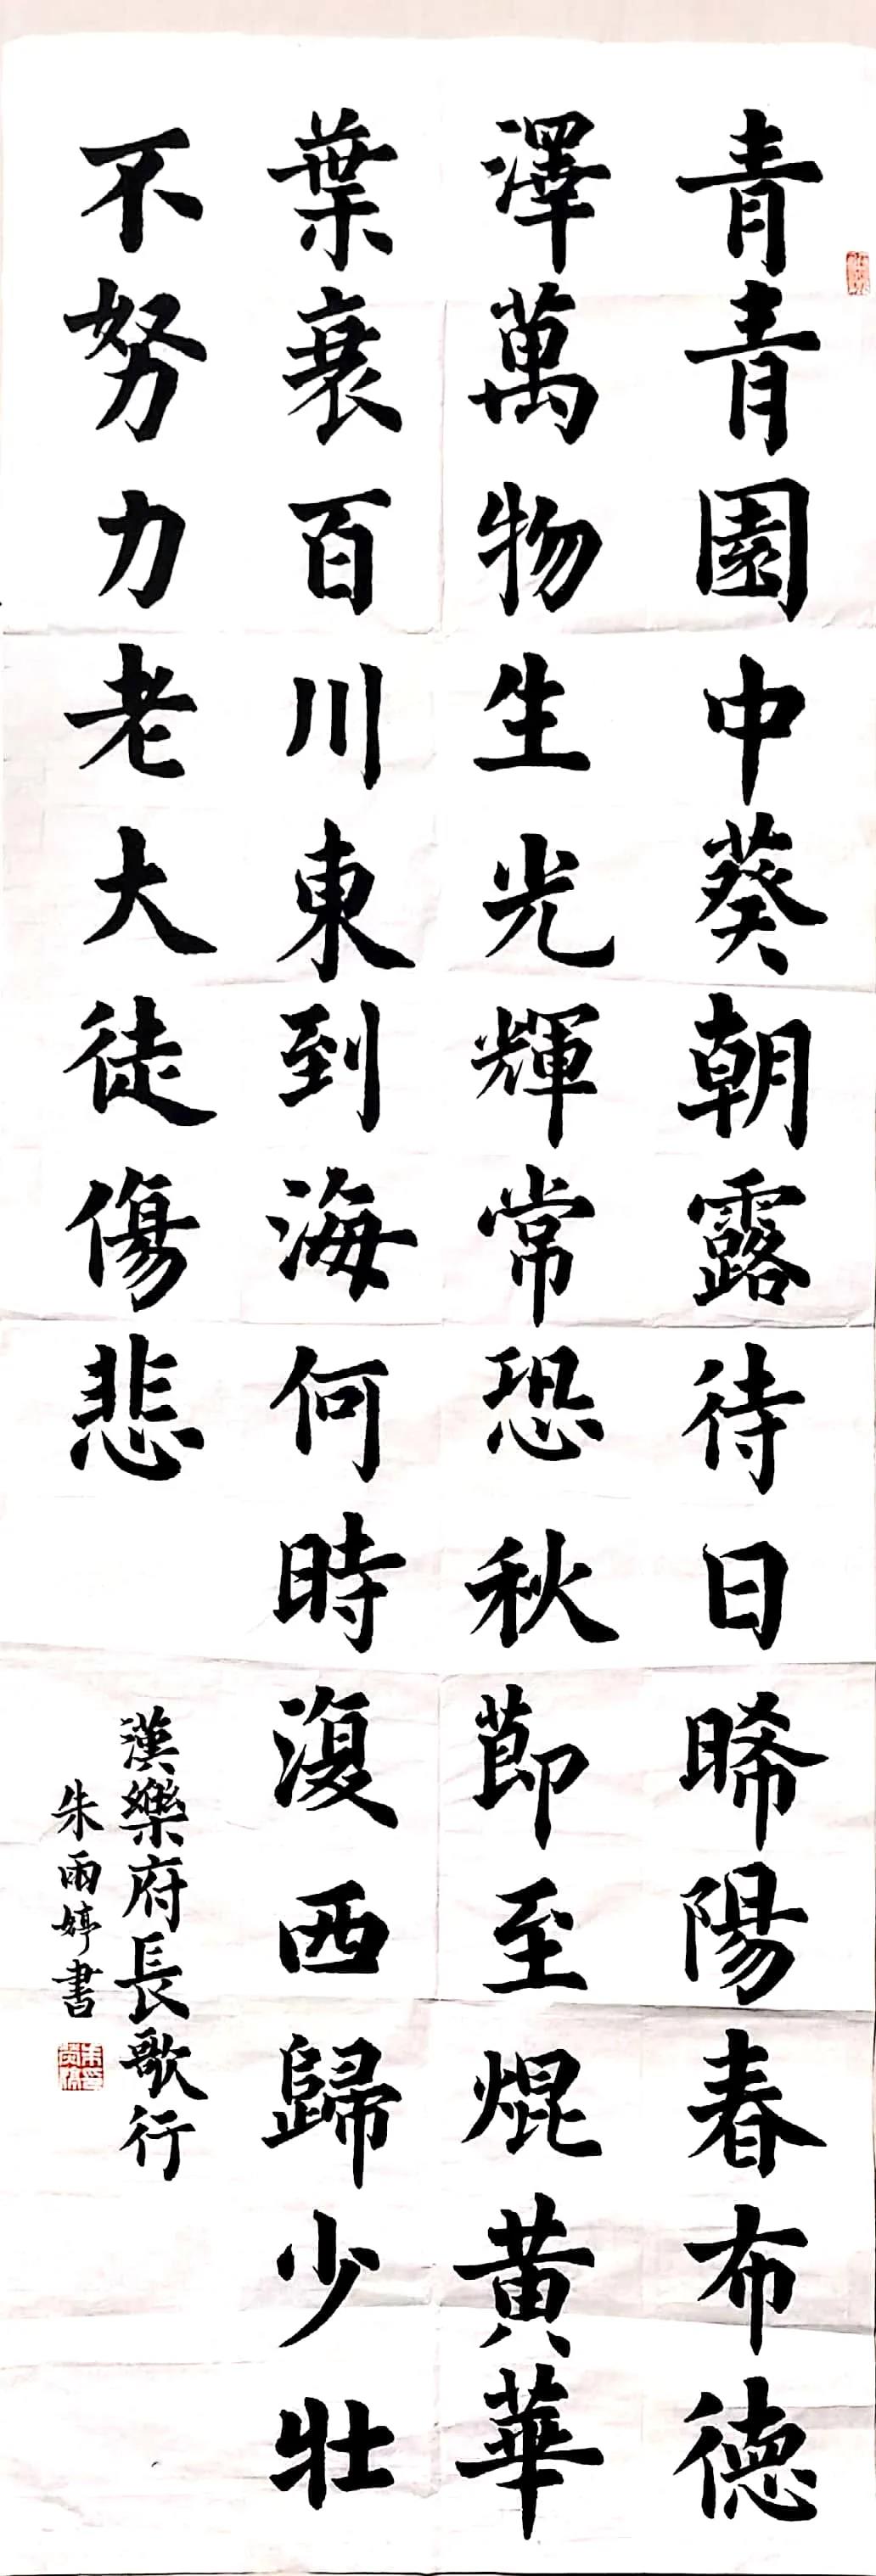 青青園中葵朝露待日晞陽春布德
澤萬物生光輝常恐秋節至焜黄華
葉衰百川東到海何時復西歸少壮
不努力老大徒傷悲
漢樂府長歌行
朱雨婷書